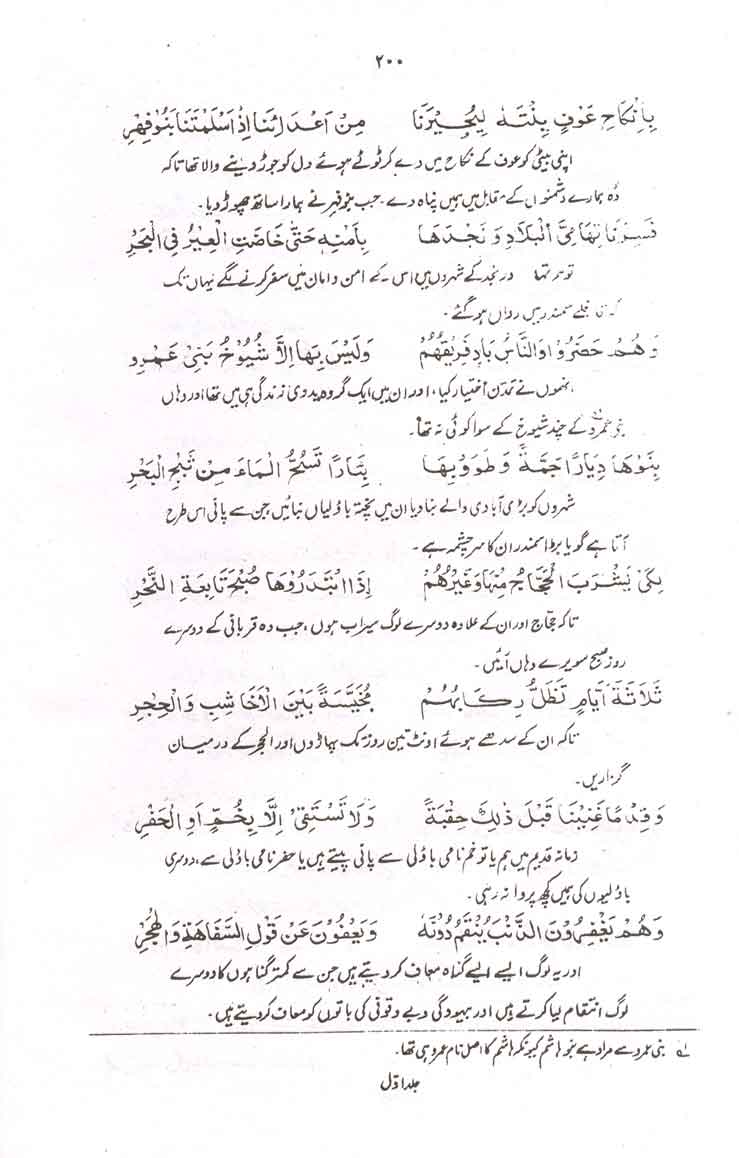 ۲۰۰
بِاِنْكَاحِ عَوْفٍ بِنْتَهٗ لِيُجِيْرَنَا مِنْ اَعْدَائِنَا اِذْ اَسْلَمَتْنَا بَنُوْ فِهْرِ
اپنی بیٹی کو عوف کے نکاح میں دے کر ٹوٹے ہوئے دل کو جوڑ دینے والا تھا تاکہ
وہ ہمارے دشمنوں کے مقابل میں ہمیں پناہ دے۔ جب بنو فہر نے ہمارا ساتھ چھوڑ دیا۔
فَسِرْنَا تِهَامِيَّ الْبِلَادِ وَنَجْدَهَا بِاَمْنِهٖ حَتّٰى خَاضَتِ الْعِيْرُ فِي الْبَحْرِ
تو ہم تہا ور نجد کے شہروں میں اس کے امن و امان میں سفر کرنے لگے یہاں تک
قافلے سمندر میں رواں ہو گئے۔
وَهُمْ حَضَرُوْا وَالنَّاسُ بَادٍ فَرِيْقُهُمْ وَلَيْسَ بِهَا اِلَّا شُيُوْخُ بَنِيْ عَمْرِو
انھوں نے تمدن اختیار کیا، اور ان میں ایک گروہ بدوی زندگی ہی میں تھا اور وہاں
بنی عمروؓ کے چند شیوخ کے سوا کوئی نہ تھا۔
بَنَوْهَا دِيَارًا جَمَّةً وَطَوَوْا بِهَا بِئَارًا تَسُحُّ الْمَاءَ مِنْ ثَبَجِ الْبَحْرِ
شہروں کو بڑی آبادی والے بنا دیا ان میں پختہ باؤلیاں بنائیں جن سے پانی اس طرح
آتا ہے گویا بڑا سمندر ان کا سرچشمہ ہے۔
لِكَيْ يَشْرَبَ الْحُجَّاجُ مِنْهَا وَغَيْرُهُمْ اِذَا ابْتَدَرُوْهَا صُبْحَ تَابِعَةِ النَّحْرِ
تاکہ حجاج اور ان کے علاوہ دوسرے لوگ سیراب ہوں، جب وہ قربانی کے دوسرے
روز صبح سویرے وہاں آئیں۔
ثَلَاثَةَ اَيَّامٍ تَظَلُّ رِكَابُهُمْ مُخَيَّسَةً بَيْنَ الْاَخَاشِبِ وَالْحِجْرِ
تاکہ ان کے سدھے ہوئے اونٹ تین روز تک پہاڑوں اور الحجر کے درمیان
گزاریں۔
وَقِدْمًا غَنِيْنَا قَبْلَ ذٰلِكَ حِقْبَةً وَلَا نَسْتَقِيْ اِلَّا بِخُمٍّ اَوِ الْحَفْرِ
زمانہ قدیم میں ہم یا تو خم نامی باؤلی سے پانی پیتے ہیں یا حفر نامی باؤلی سے، دوسری
باؤلیوں کی ہمیں کچھ پروا نہ رہی۔
وَهُمْ يَغْفِرُوْنَ الذَّنْبَ يُنْقَمُ دُوْنَهٗ وَيَعْفُوْنَ عَنْ قَوْلِ السَّفَاهَةِ وَالْهُجْرِ
اور یہ لوگ ایسے ایسے گناہ معاف کر دیتے ہیں جن سے کمتر گناہوں کا دوسرے
لوگ انتقام لیا کرتے ہیں اور بیہودگی و بے وقوفی کی باتوں کو معاف کر دیتے ہیں۔
لہ بنی عمرو سے مراد ہے بنو ہاشم کیونکہ ہاشم کا اصل نام عمرو ہی تھا۔
جلد اوّل